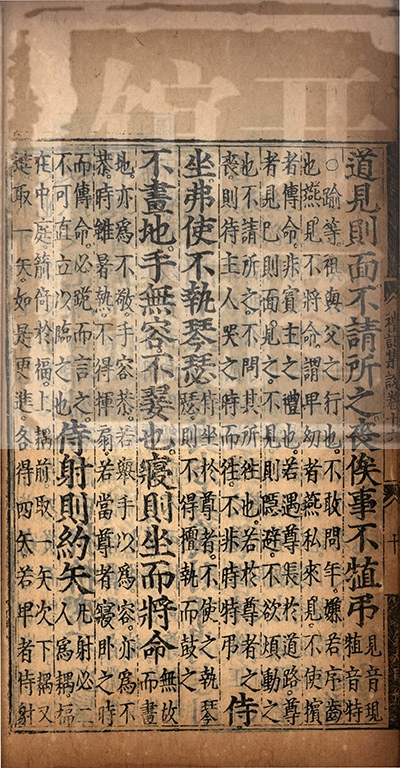 道見則面不請所之喪俟事不犆弔見音現
犆音特
○踰等祖與父之行也不敢問年嫌若序齒
也燕見不將命謂卑幼者燕私來見不使擯
者傳命非賓主之禮也若遇尊長於道路尊
者見己則面見之不見則隱避不欲煩動之
也不請所之不問其所往也若於尊者之
喪則待主人哭之時而往不非時特弔
侍
坐弗使不執琴瑟侍坐於尊者不使之執琴
瑟則不得擅執而鼓之
不畫地手無容不翣也寢則坐而將命無故
而畫
地亦爲不敬手容恭若舉手以爲容亦爲不
恭時雖暑熱不得揮扇若當尊者寢卧之時
而傳命必跪而言之
不可直立以臨之也
侍射則約矢凡射必二
人爲耦楅
在中庭箭倚於楅上耦前取一矢次下耦又
進取一矢如是更進各得四矢若卑者侍射
禮記集說卷十六
十